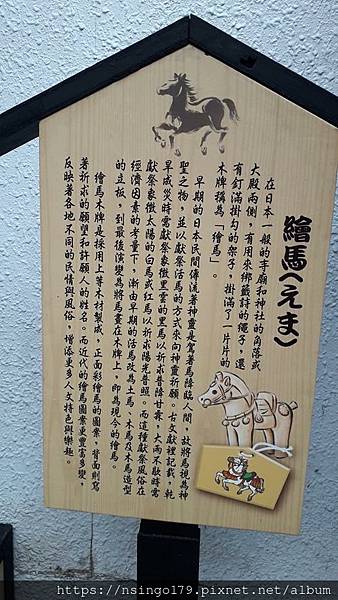 繪馬(えま)
在日本一般的寺廟和神社的角落或
大殿兩側,有用來綁籤詩的繩子,還
有釘滿掛勾的架子,掛滿了一片片的
木牌稱為「繪馬」。
早期的日本民間傳流著神靈是駕著馬降臨人間,故將馬視為神
聖之物,並以獻祭活馬的方式來向神靈祈願。古文獻裡記載,乾
旱成災時需獻祭象徵黑雲的黑馬以祈求普降甘霖,大雨不歇時需
獻祭象徵太陽的白馬或紅馬以祈求陽光普照。而這種獻祭風俗在
經濟因素的考量下,漸由早期的活馬改為土馬、木馬及木馬造型
的立板,到最後演變為將馬畫在木牌上,即為現今的繪馬。
繪馬木牌是採用上等木材製成,正面彩繪馬的圖案,背面則寫
著祈求的願望和許願人的姓名。而近代的繪馬圖案更豐富多變,
反映著各地不同的民情與風俗,增添更多人文特色與樂趣。
https://nsingo179.pixnet.net/album